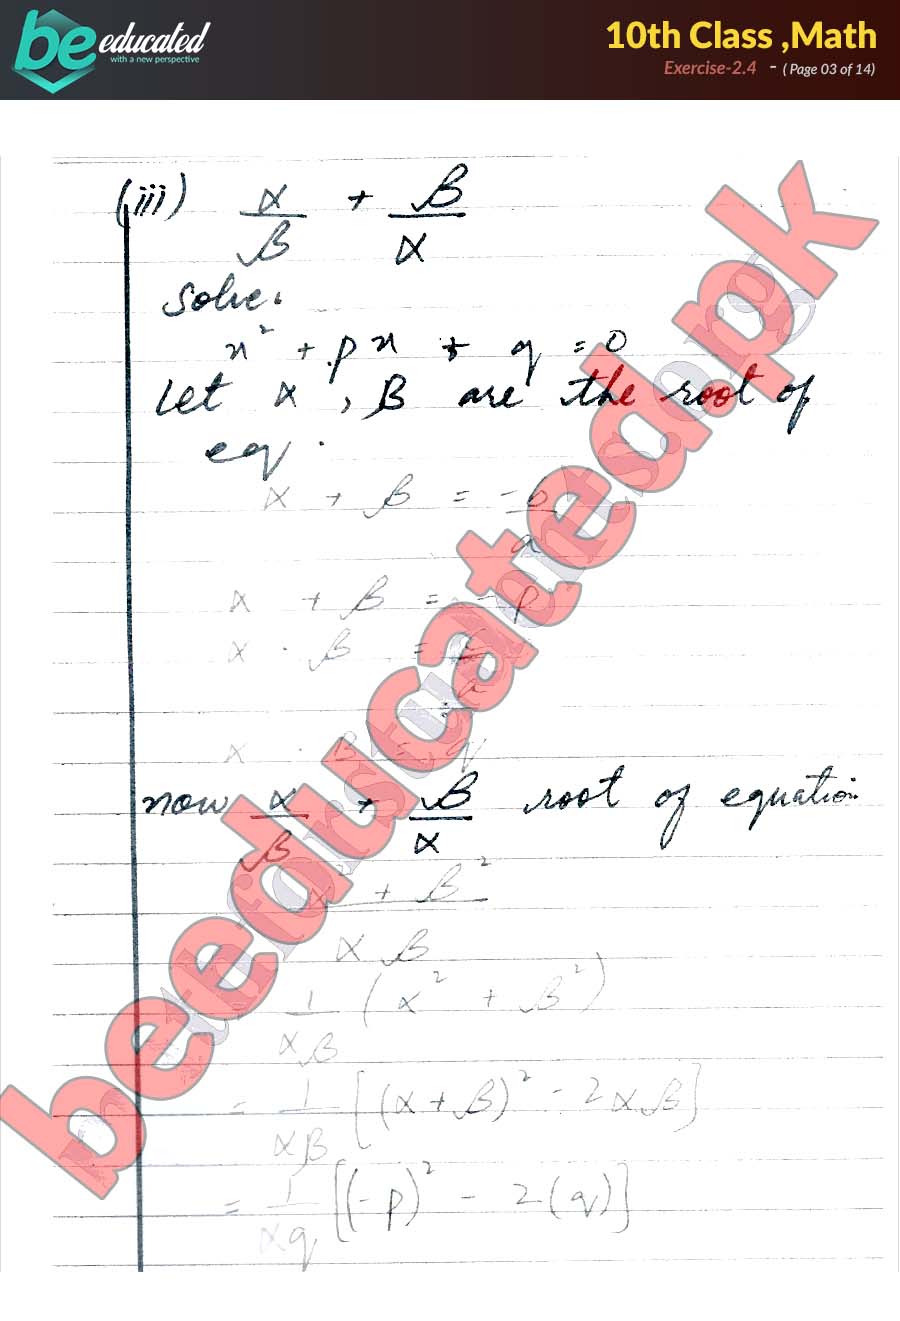 be educated
with a new perspective
10th Class ,Math
Exercise-2.4 - ( Page 03 of 14)
(iii) α/β + β/α
Solve.
x² + px + q = 0
Let α , β are the root of
eq.
α + β = -b/a
α + β = -p
α . β = c/a
α . β = q
now α/β + β/α root of equation
α² + β² / αβ
1/αβ (α² + β²)
= 1/αβ [(α+β)² - 2αβ]
= 1/αq [(-p)² - 2(q)]
beeducated.pk